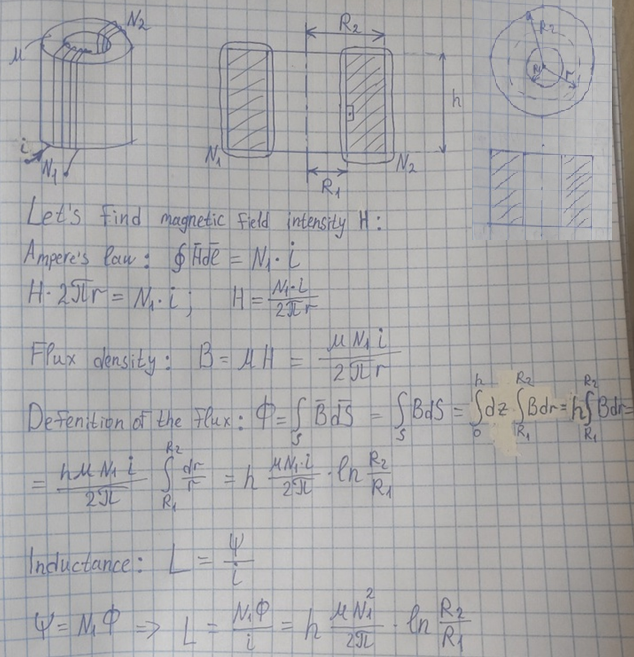 N₂
μ
i
N₁
R₂
h
N₁
N₂
R₁
R₂
R₁
r
Let's find magnetic field intensity H:
Ampere's law: ∮H̄dl̄ = N₁·i
H·2πr = N₁·i; H = N₁·i/2πr
Flux density: B = μH = μN₁i/2πr
Defenition of the flux: Φ = ∫_S B̄dS̄ = ∫_S BdS = ∫₀^h dz ∫_R₁^R₂ Bdr = h∫_R₁^R₂ Bdr =
= hμN₁i/2π ∫_R₁^R₂ dr/r = h μN₁·i/2π · ln R₂/R₁
Inductance: L = Ψ/i
Ψ = N₁Φ ⇒ L = N₁Φ/i = h μN₁²/2π · ln R₂/R₁